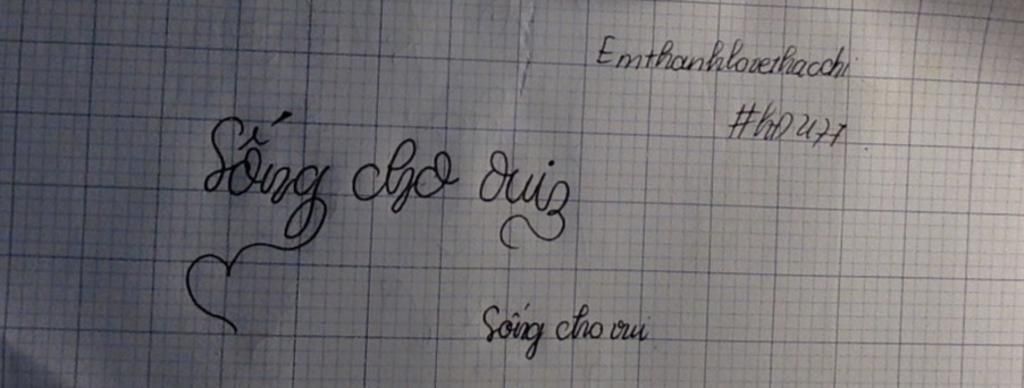 Emthanhlovethacchi
Sống cho vui
Sống cho vui